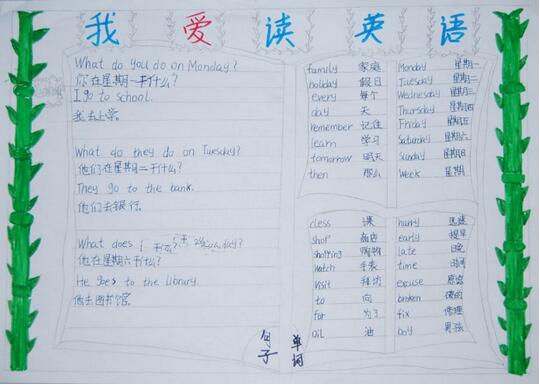 我爱读英语
What do you do on Monday?
你在星期一干什么?
I go to school.
我去上学.
What do they do on Tuesday?
他们在星期二干什么?
They go to the bank.
他们去银行.
What does
他在星期六干什么?
He goes to the library.
他去图书馆
句子
family 家庭
holiday 假日
every 每个
day 天
remember 记住
learn 学习
tomorrow 明天
then 那么
Monday 星期一
Tuesday 星期二
Wednesday 星期三
Thursday 星期四
Friday 星期五
Saturday 星期六
Sunday 星期日
Week 星期
class 课
shop 商店
shopping 购物
watch 手表
visit 拜访
to 向
for 为了
oil 油
hurry 迅速
early 提早
late 晚
time 时间
excuse 原谅
broken 坏的
fix 修理
boy 男孩
单词